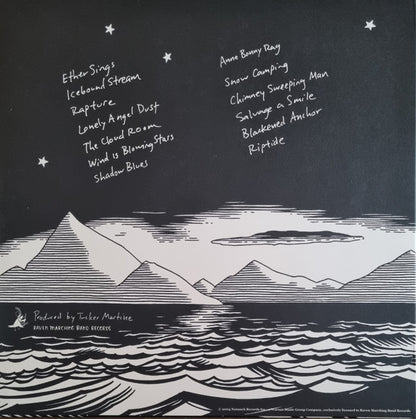 Ether Sings
Icebound Stream
Rapture
Lonely Angel Dust
The Cloud Room
Wind is Blowning Stars
Shadow Blues
Anne Bonny Rag
Snow Camping
Chimney Sweeping Man
Salvage a Smile
Blackened Anchor
Riptide
Produced by Tucker Martine
RAVEN MARCHING BAND RECORDS